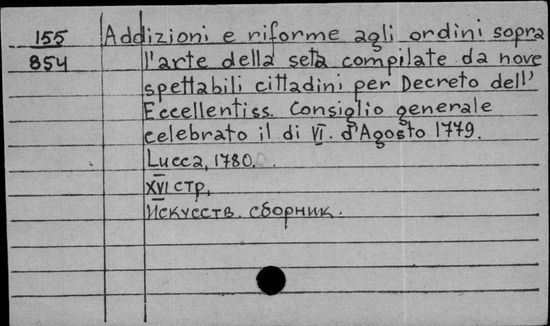 155 Addizioni e riforme agli ordini sopra
854 l'arte della seta compilate da nove
spettabili cittadini per Decreto dell'
Eccellentiss. Consiglio generale
celebrato il di VI. d'Agosto 1779.
Lucca, 1780.
XVI стр,
Искусств. сборник.